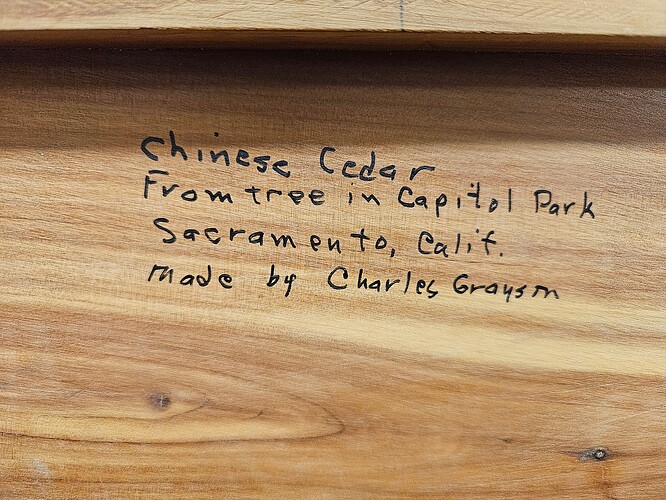 Chinese Cedar
From tree in Capitol Park
Sacramento, Calif.
Made by Charles Grayson